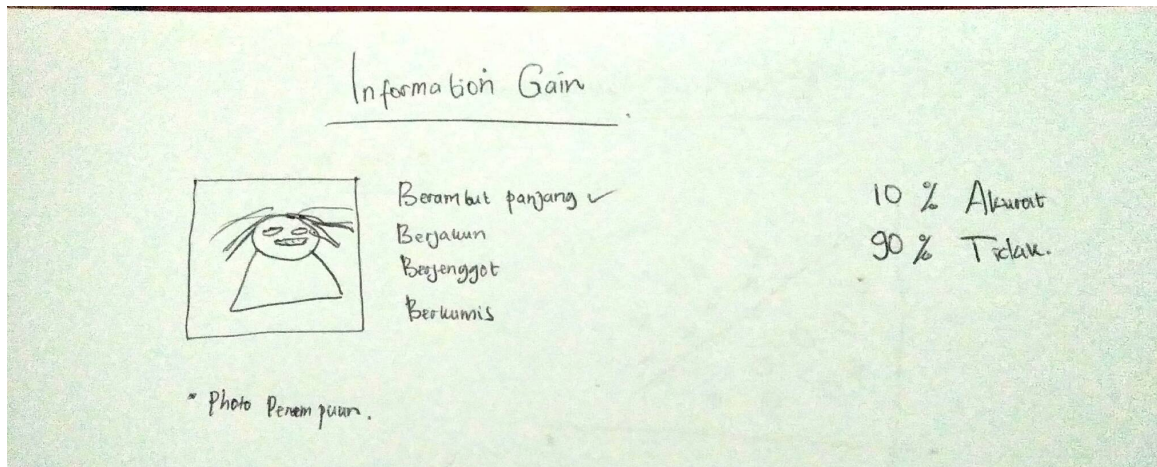 Information Gain
Berambut panjang ✓
Berjakun
Berjenggot
Berkumis
10 % Akurat
90 % Tidak.
* Photo Perempuan.